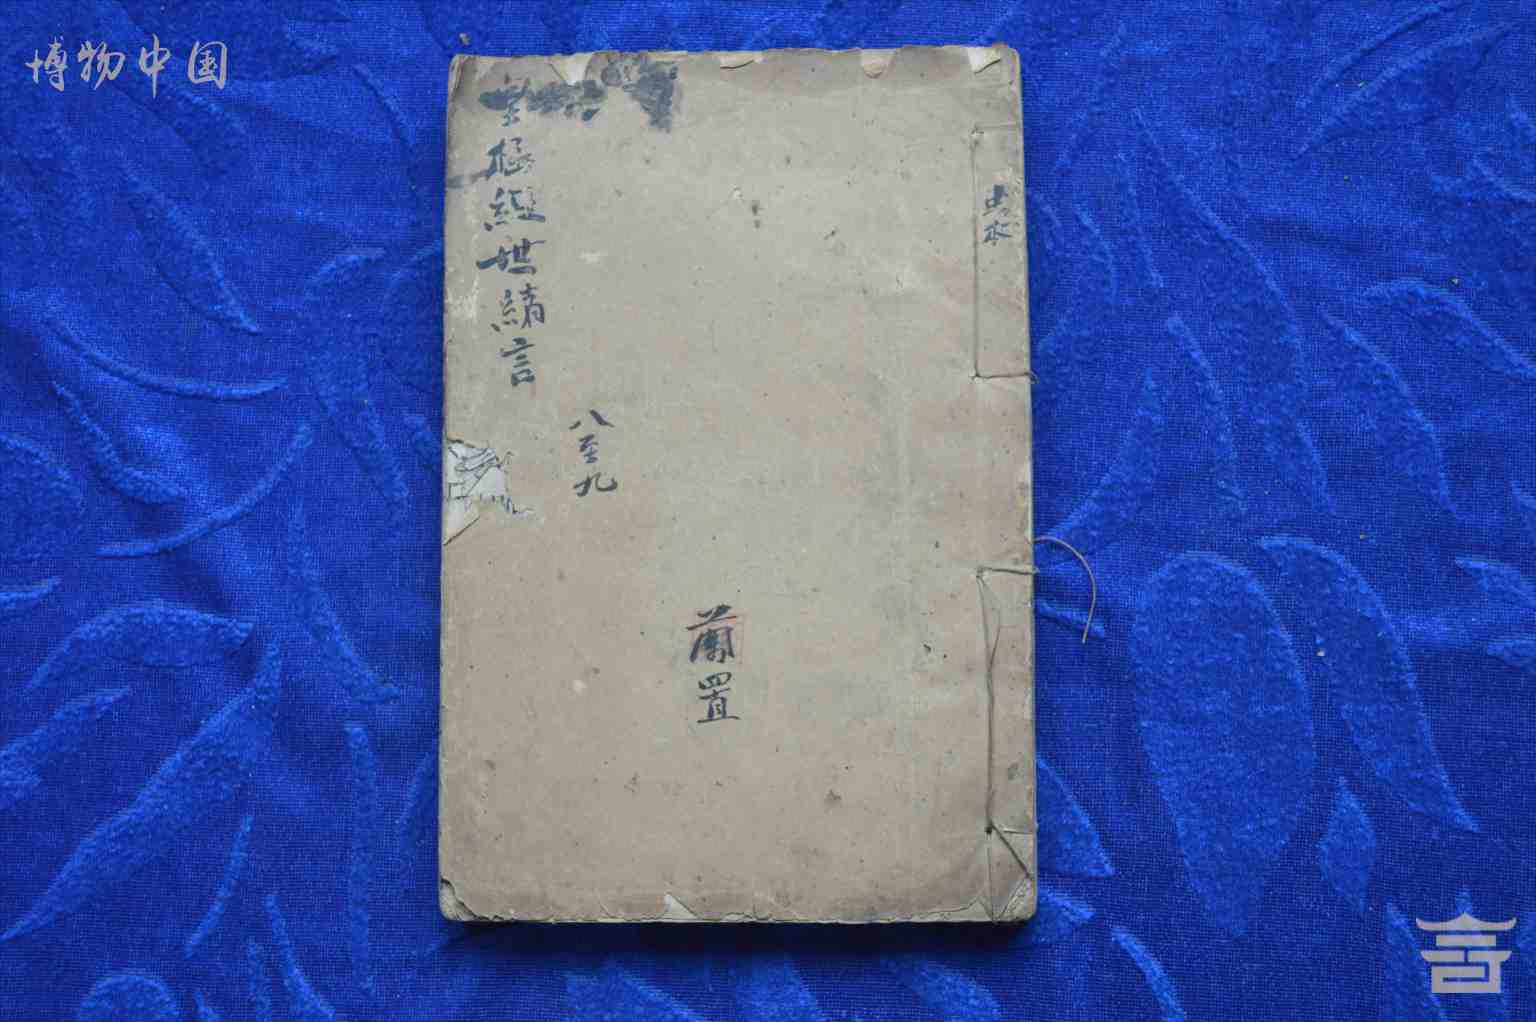 博物中国
皇極經世緒言
八至九
蘭置